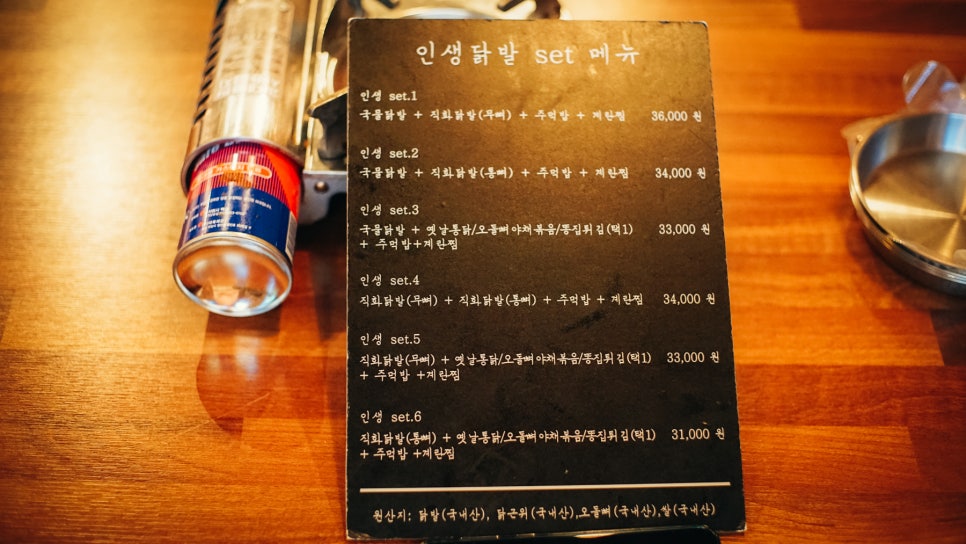 인생닭발 set 메뉴
인생 set.1
국물닭발 + 직화닭발(무뼈) + 주먹밥 + 계란찜 36,000 원
인생 set.2
국물닭발 + 직화닭발(통뼈) + 주먹밥 + 계란찜 34,000 원
인생 set.3
국물닭발 + 옛날통닭/오돌뼈야채볶음/똥집튀김(택1) 33,000 원
+ 주먹밥+계란찜
인생 set.4
직화닭발(무뼈) + 직화닭발(통뼈) + 주먹밥 + 계란찜 34,000 원
인생 set.5
직화닭발(무뼈) + 옛날통닭/오돌뼈야채볶음/똥집튀김(택1) 33,000 원
+ 주먹밥 +계란찜
인생 set.6
직화닭발(통뼈) + 옛날통닭/오돌뼈야채볶음/똥집튀김(택1) 31,000 원
+ 주먹밥 +계란찜
원산지: 닭발(국내산), 닭근위(국내산),오돌뼈(국내산),쌀(국내산)